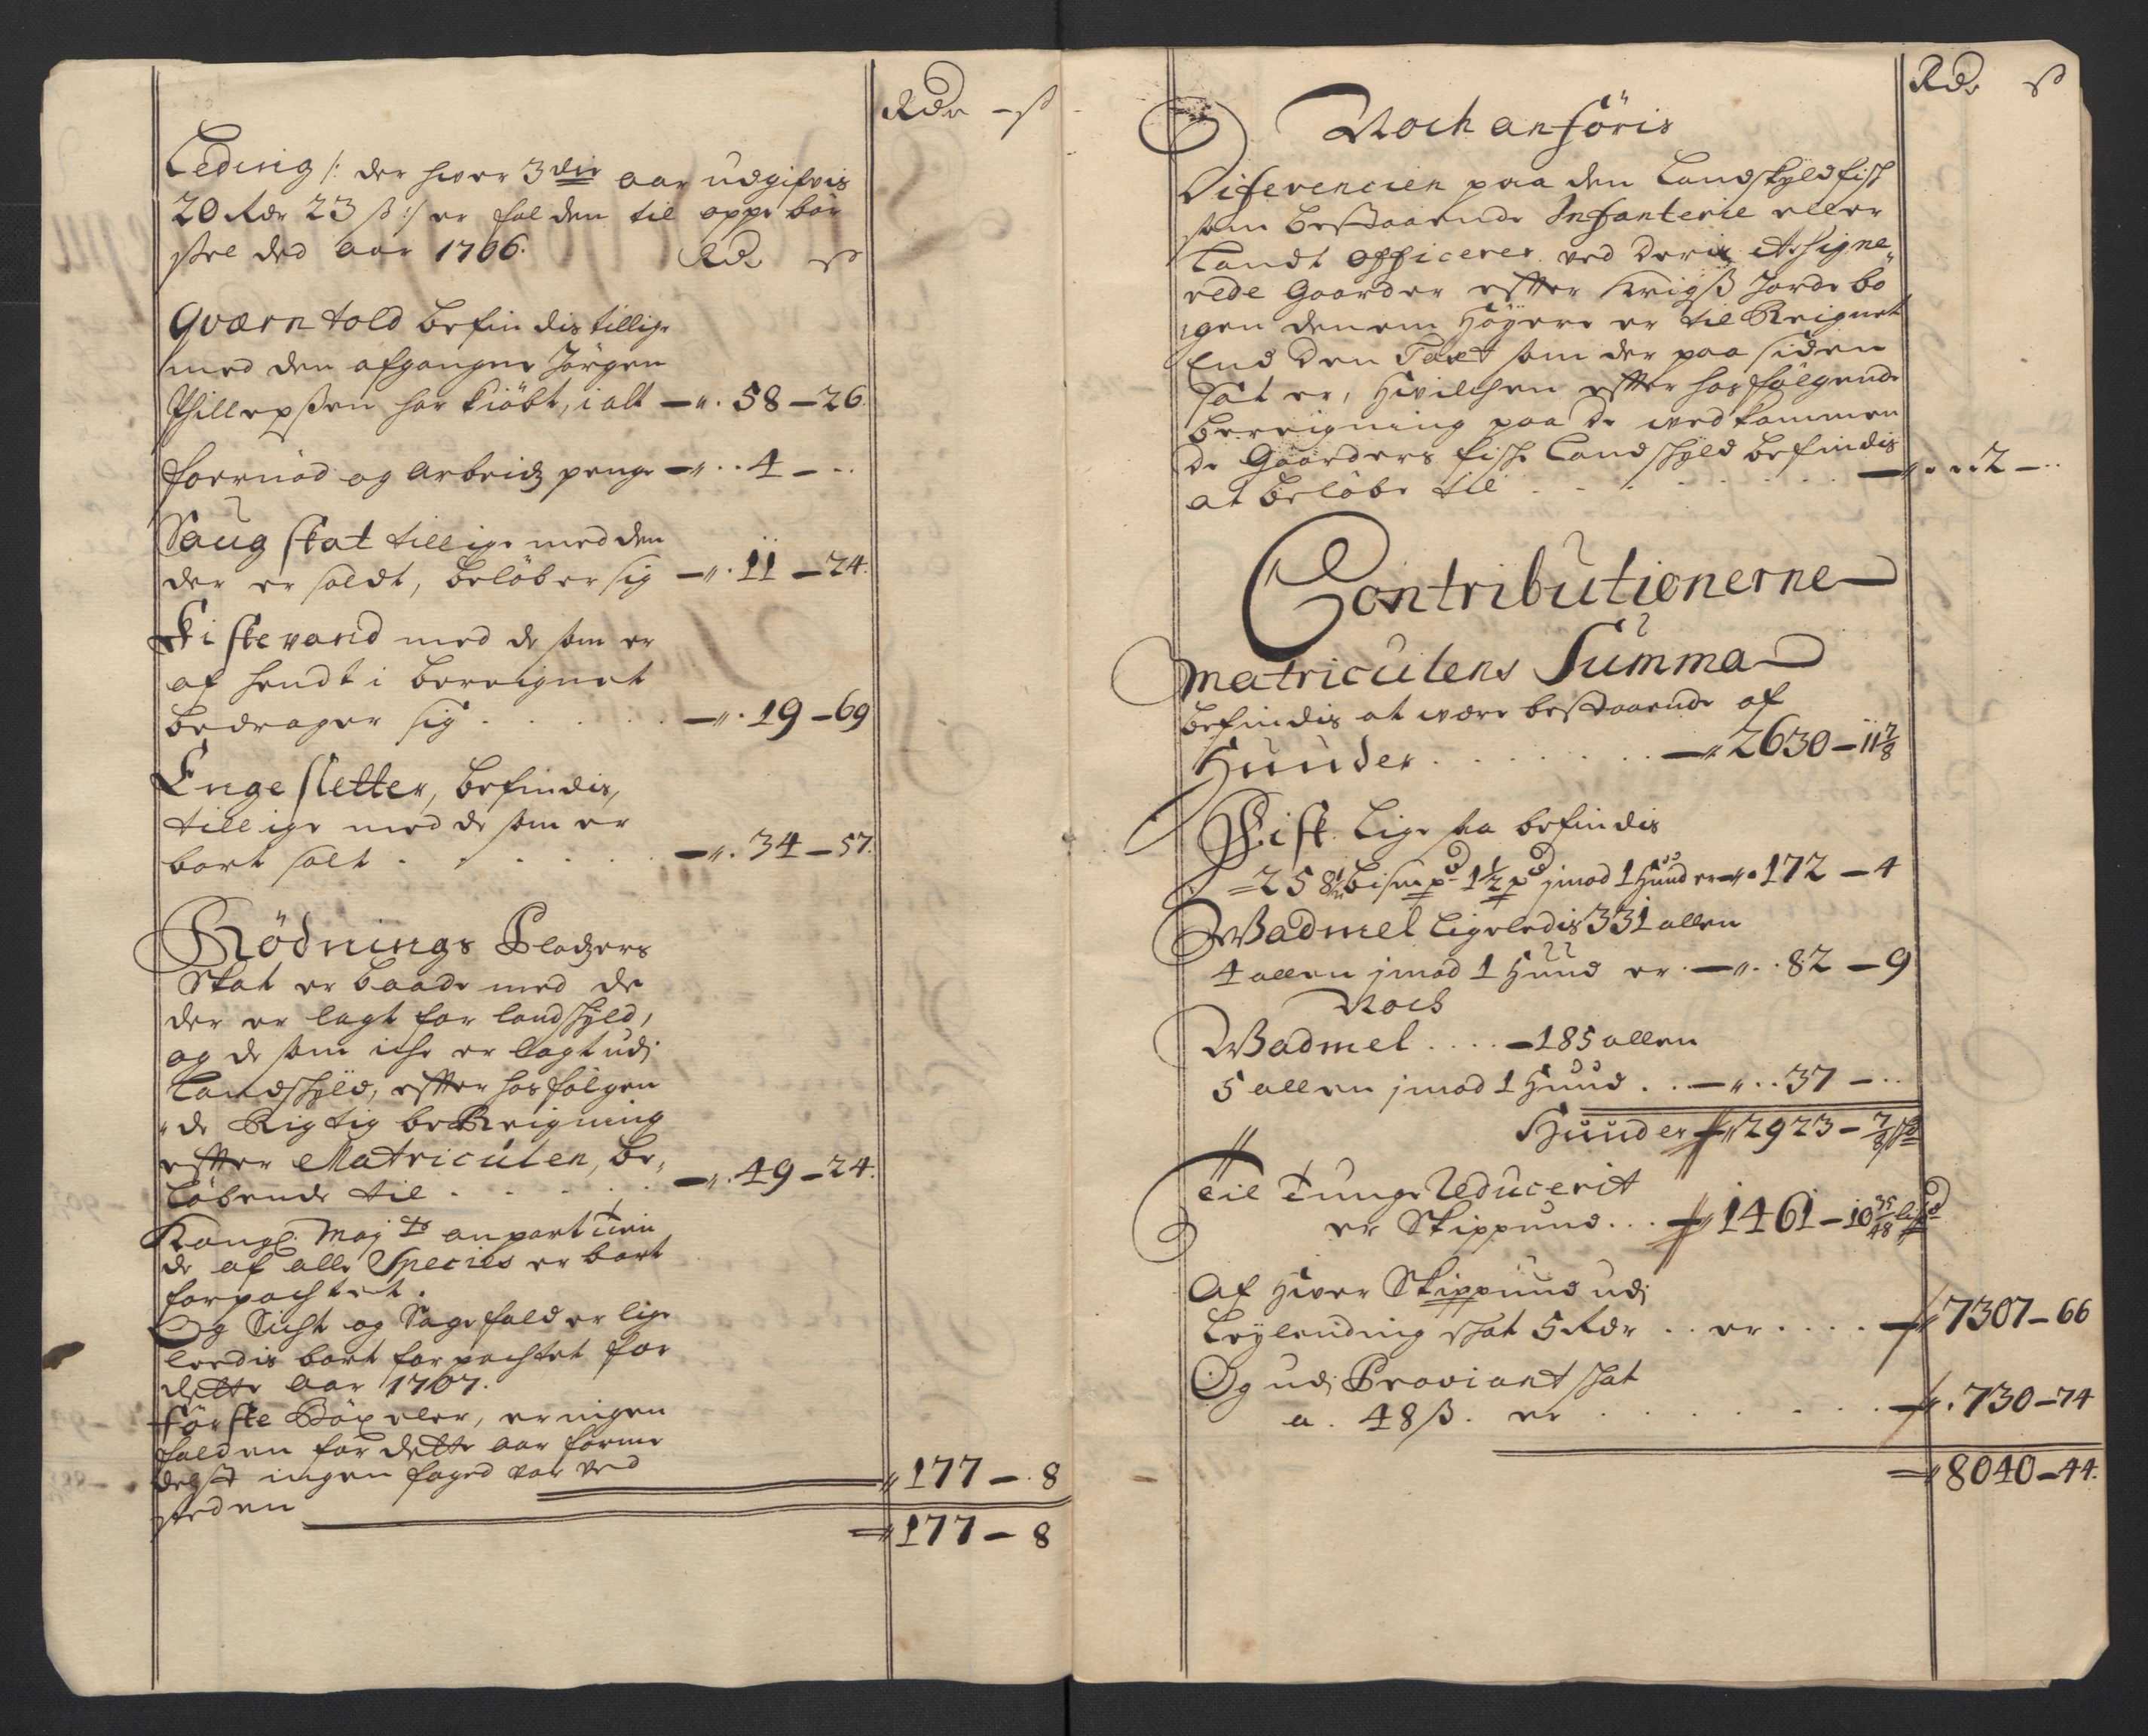 Rdr – ß
Leding /: der hver 3die aar udgifvis
20 Rdr 23 ß :/ er falden til oppebør
sel ved aar 1706. Rdr ß
Qværn told befindis tillige
med den afgangne Jørgen
Phillepsßen har kiöbt, i alt —„. 58 – 26.
foernöd og arbeidz penge —„.. 4 – ..
Saug skat tillige med den
der er soldt, beløber sig —„. 11 – 24.
Fiskevand med de som er
af hendt i bereignet
bedrager sig . . . . —„. 19 – 69
Enge sletter, befindis,
tillige med de som er
bort solt . . . . —„. 34 – 57.
Rödnings Pladzers
Skat er baade med de
der er lagt for landskyld,
og de som iche er lagt udj
Landskyld, efter hosfølgen
„de Rigtig beReigning
efter Matriculen, be„
løbende til . . . . —„. 49 – 24.
Kongl. Maj ts anpart tien
de af alle Species er bort
forpachtet.
Og Sicht og Sagefald er lige
leedis bort forpachtet for
dette aar 1707.
Förste Böxeler, er ingen
falden for dette aar forme
delst ingen foged var ved
steden
„ 177 – . 8
„ 177 – 8
Rdr ß
Noch anföris
Diferencien paa den Landskyld fisk
som bestaaende Infanterie eller
Landt Officerer ved deris Assigne„
rede Gaarder efter Krigß Jordebo
„gen denem høyere er til Reignet
End den Taxt som der paa siden
sat er, hvilchen efter hosfølgende
bereigning paa de vedkommen
de Gaarders fiske Landskyld befindis
at beløbe til . . . . —„ . . 2 – ..
Contributionerne
Matriculens Summa
befindis at være bestaaende af
Huuder . . . . . —„ 2630 – 11 7/8
Fisk. Lige saa befindis
= 258 1/2 bismpd 1 1/2 pd jmod 1 huud er —„. 172 – 4
Wadmel ligeledis 331 allen
4 allen jmod 1 Huud er . —„. . 82 – 9
Noch
Wadmel . . . . – 185 allen
5 allen jmod 1 Huud . . —„. . 37 – ..
Huuder „ 2923 – 7/8
Til Tunge Reducerit
er Skippund . . . „ 1461 – 10 35/48 lispd
Af hver Skippund udj
Leylending skat 5 Rdr . . er . . . . „ 7307 – 66
Og udj Proviant skat
a. 48 ß. er . . . . „. 730 – 74
„ 8040 – 44.